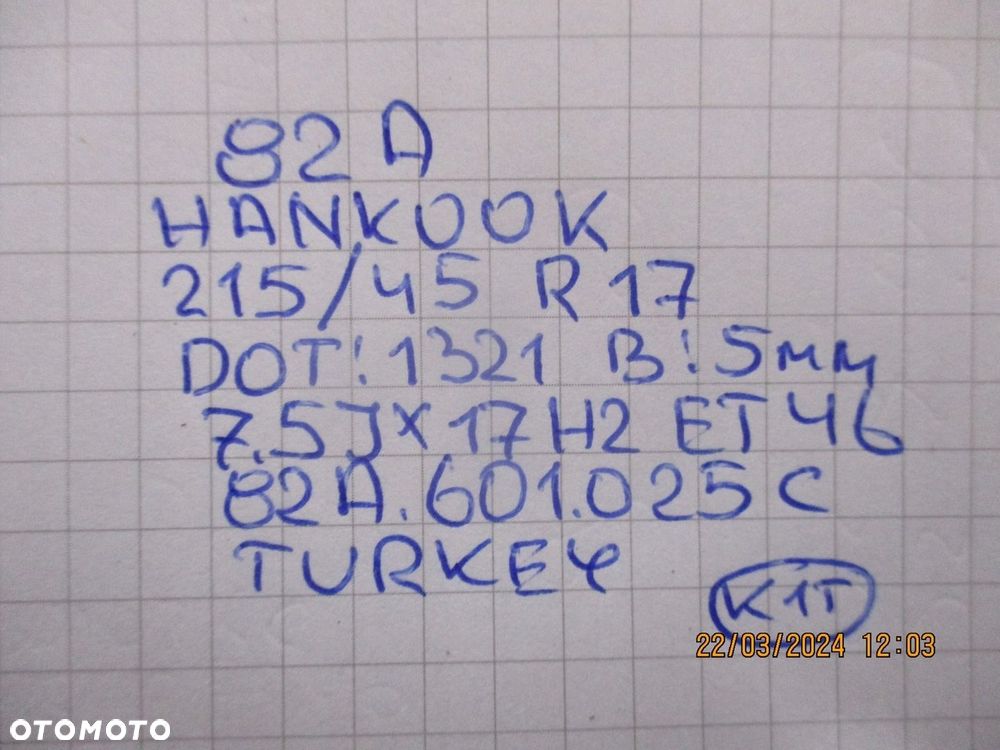 82 A
HANKOOK
215/45 R 17
DOT: 1321 B: 5mm
7.5J x 17 H2 ET 46
82A.601.025 C
TURKEY
K1T
22/03/2024 12:03
OTOMOTO